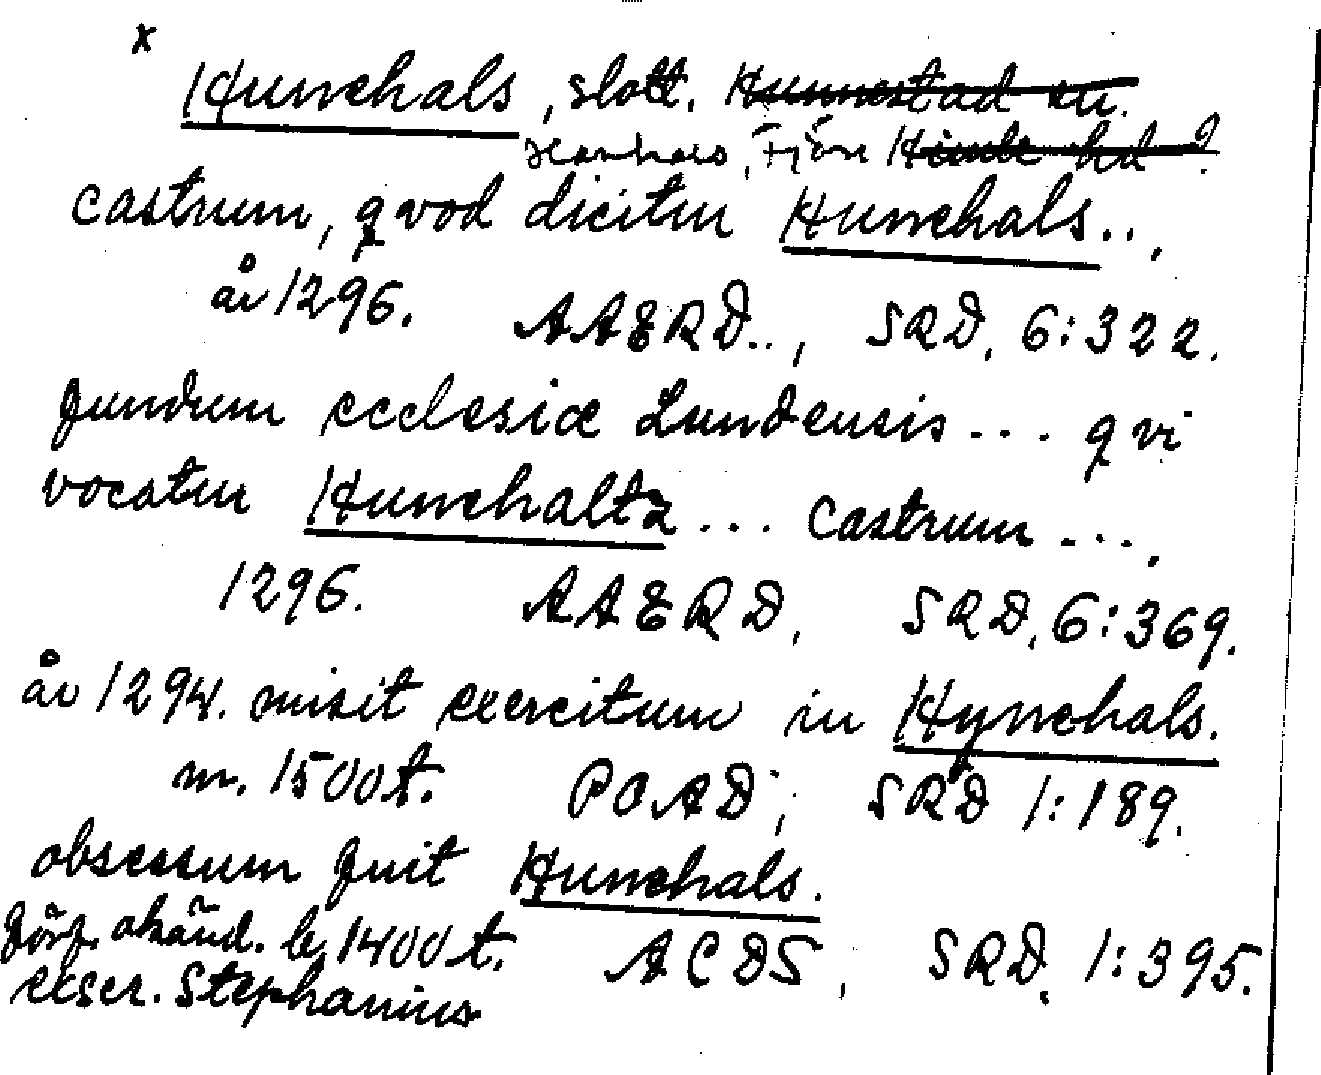 x
Hunehals, slott. Hunnestad sn.
Hanhals, Fjäre Himle hd?
castrum, qvod dicitur Hunehals..,
år 1296. AAERD.., SRD. 6:322.
fundum ecclesiæ Lundensis... qvi
vocatur Hunehaltz... castrum....
1296. AAERD, SRD. 6:369.
år 1294. misit exercitum in Hynehals.
m. 1500t. POAD; SRD 1:189.
obsessum fuit Hunehals.
förf. okänd. b. 1400t. ACDS, SRD. 1:395.
excer. Stephanius